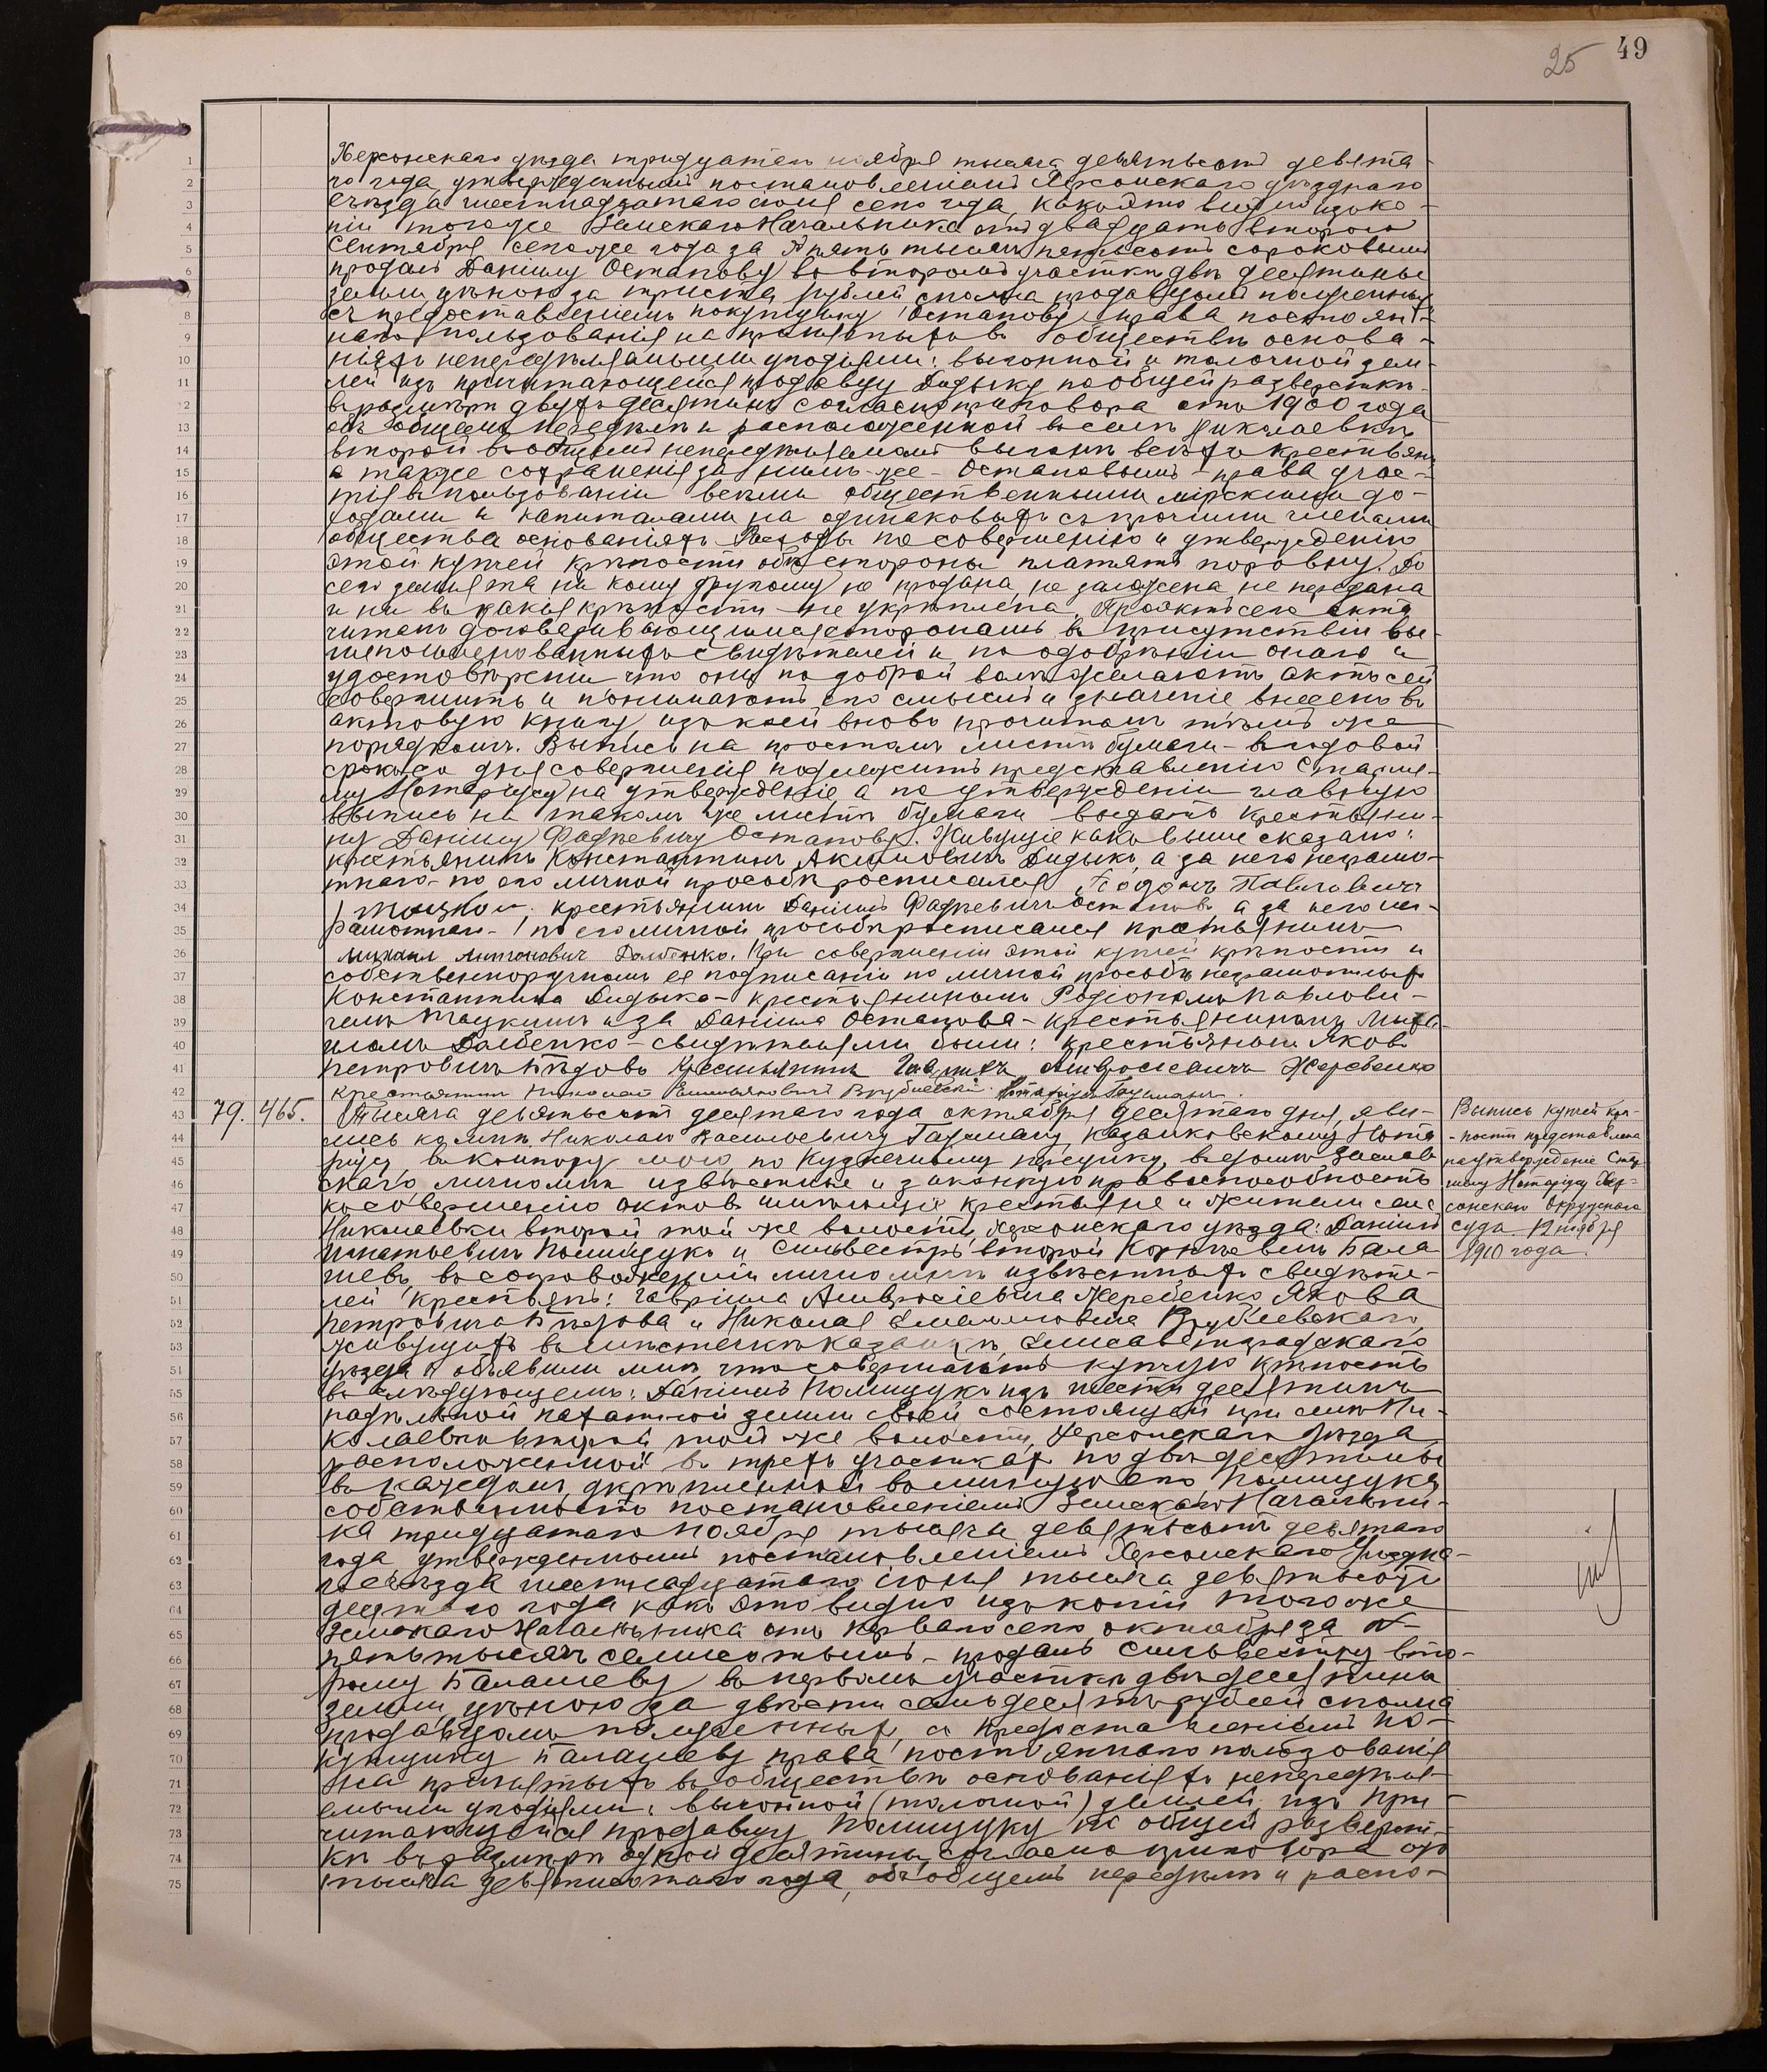 25 49
Херсонскаго уѣзда тридцатаго ноября тысяча девятьсотъ девята-
го года, утвержденнымъ постановленіемъ Херсонскаго уѣзднаго
съѣзда шестнадцатаго іюня сего года, какъ это видно изъ ко-
піи того-же Земскаго Начальника отъ двадцать второго
сентября сего-же года за № пять тысячъ пятьсотъ сороковымъ
продалъ Даніилу Остапову во второмъ участкѣ двѣ десятины
земли цѣною за триста рублей сполна продавцомъ полученныхъ
съ предоставленіемъ покупщику Остапову права постоян-
наго пользованія на принятыхъ въ обществѣ основа-
ніяхъ непередѣляемыми угодьями: выгонной и толочной зем-
лей изъ причитающейся продавцу Дидыку по общей разверсткѣ
въ размѣрѣ двухъ десятинъ согласно приговора отъ 1900 года
объ общемъ передѣлѣ и расположенной въ селѣ Николаевкѣ
второй въ общемъ непередѣляемомъ выгонѣ всѣхъ крестьянъ
а также сохраненія за нимъ-же - Остаповымъ - права учас-
тія въ пользованіи всѣми общественными мірскими до-
ходами и капиталами на одинаковыхъ съ прочими членами
общества основаніяхъ. Расходы по совершенію и утвержденію
этой купчей крѣпости обѣ стороны платятъ поровну. До
сего земля та ни кому другому не продана, не заложена, не передана
и ни въ какія крѣпости не укрѣплена. Проэктъ сего акта
читанъ договаривающимся сторонамъ въ присутствіи вы-
шепоименованныхъ свидѣтелей и по одобреніи онаго и
удостовѣреніи что они по доброй волѣ желаютъ актъ сей
совершить и понимаютъ его смыслъ и значеніе внесенъ въ
актовую книгу, изъ коей вновь прочитанъ тѣмъ же
порядкомъ. Выпись на простомъ листѣ бумаги - въ годовой
срокъ со дня совершенія подлежитъ представленію Старше-
му Нотаріусу на утвержденіе, а по утвержденіи главную
выпись на такомъ же листѣ бумаги выдать крестьяни-
ну Даніилу Фадѣевичу Остапову. Живущіе какъ выше сказано:
крестьянинъ Константинъ Акимовичъ Дидыкъ, а за него неграмо-
тнаго - по его личной просьбѣ росписался Родіонъ Павловичъ
крестьянинъ Даніилъ Фадѣевичъ Остаповъ а за него нег-
рамотнаго - по его личной просьбѣ росписался крестьянинъ
Михаилъ Антоновичъ Долбенко. При совершеніи этой купчей крѣпости и
собственноручномъ ея подписаніи по личной просьбѣ неграмотныхъ
Константина Дидыка - крестьяниномъ Родіономъ Павлови-
чемъ и за Даніила Остапова - крестьяниномъ Миха-
иломъ Долбенко - свидѣтелями были: крестьянинъ Яковъ
Петровичъ Крестьянинъ Гавріилъ Амвросіевичъ Жеребенко
крестьянинъ Николай Врублевскій. Нотаріусъ Гаусманъ.
79. 465. Тысяча девятьсотъ десятаго года октября десятаго дня, яви-
лись ко мнѣ Николаю Васильевичу Гаусману, Казанковскому Нота-
ріусу, въ контору мою, по Кузнечному переулку, въ домѣ Заслав-
скаго лично мнѣ извѣстные и законную правоспособность
къ совершенію актовъ имѣющіе крестьяне и жители села
Николаевки второй той же волости, Херсонскаго уѣзда: Даніилъ
Игнатьевичъ Полищукъ и Сильвестръ второй Корнѣевичъ Бала-
шевъ, въ сопровожденіи лично мнѣ извѣстныхъ свидѣте-
лей крестьянъ: Гавріила Амвросіевича Жеребенко, Якова
Петровича и Николая Врублевскаго,
живущихъ въ мѣстечкѣ Казанкѣ, Елисаветградскаго
уѣзда и объявили мнѣ, что совершаютъ купчую крѣпость
въ слѣдующемъ: Даніилъ Полищукъ изъ шести десятинъ
надѣльной пахатной земли своей состоящей при селѣ Ни-
колаевкѣ второй той же волости, Херсонскаго уѣзда,
расположенной въ трехъ участкахъ по двѣ десятины
въ каждомъ, укрѣпленной въ личную его Полищука
собственность постановленіемъ Земскаго Начальни-
ка тридцатаго ноября тысяча девятьсотъ девятаго
года утвержденнымъ постановленіемъ Херсонскаго Уѣздна-
го съѣзда шестнадцатаго іюня тысяча девятьсотъ
десятаго года какъ это видно изъ копіи того-же
Земскаго Начальника отъ перваго сего октября за №
пять тысячъ семисотымъ - продалъ Сильвестру вто-
рому Балашеву въ первомъ участкѣ двѣ десятины
земли, цѣною за двѣсти семьдесятъ рублей сполна
продавцомъ полученныхъ, съ предоставленіемъ по-
купщику Балашеву права постояннаго пользованія
на принятыхъ въ обществѣ основаніяхъ непередѣля-
емыми угодьями: выгонной (толочной) землей, изъ при-
читающейся продавцу Полищуку по общей разверст-
кѣ въ размѣрѣ одной десятины, согласно приговора отъ
тысяча девятисотаго года, объ общемъ передѣлѣ и распо-
Выпись купчей крѣ-
-пости представлена
на утвержденіе Стар-
шему Нотаріусу Хер-
сонскаго Окружнаго
суда 12 ноября
1910 года.
1
2
3
4
5
6
7
8
9
10
11
12
13
14
15
16
17
18
19
20
21
22
23
24
25
26
27
28
29
30
31
32
33
34
35
36
37
38
39
40
41
42
43
44
45
46
47
48
49
50
51
52
53
54
55
56
57
58
59
60
61
62
63
64
65
66
67
68
69
70
71
72
73
74
75